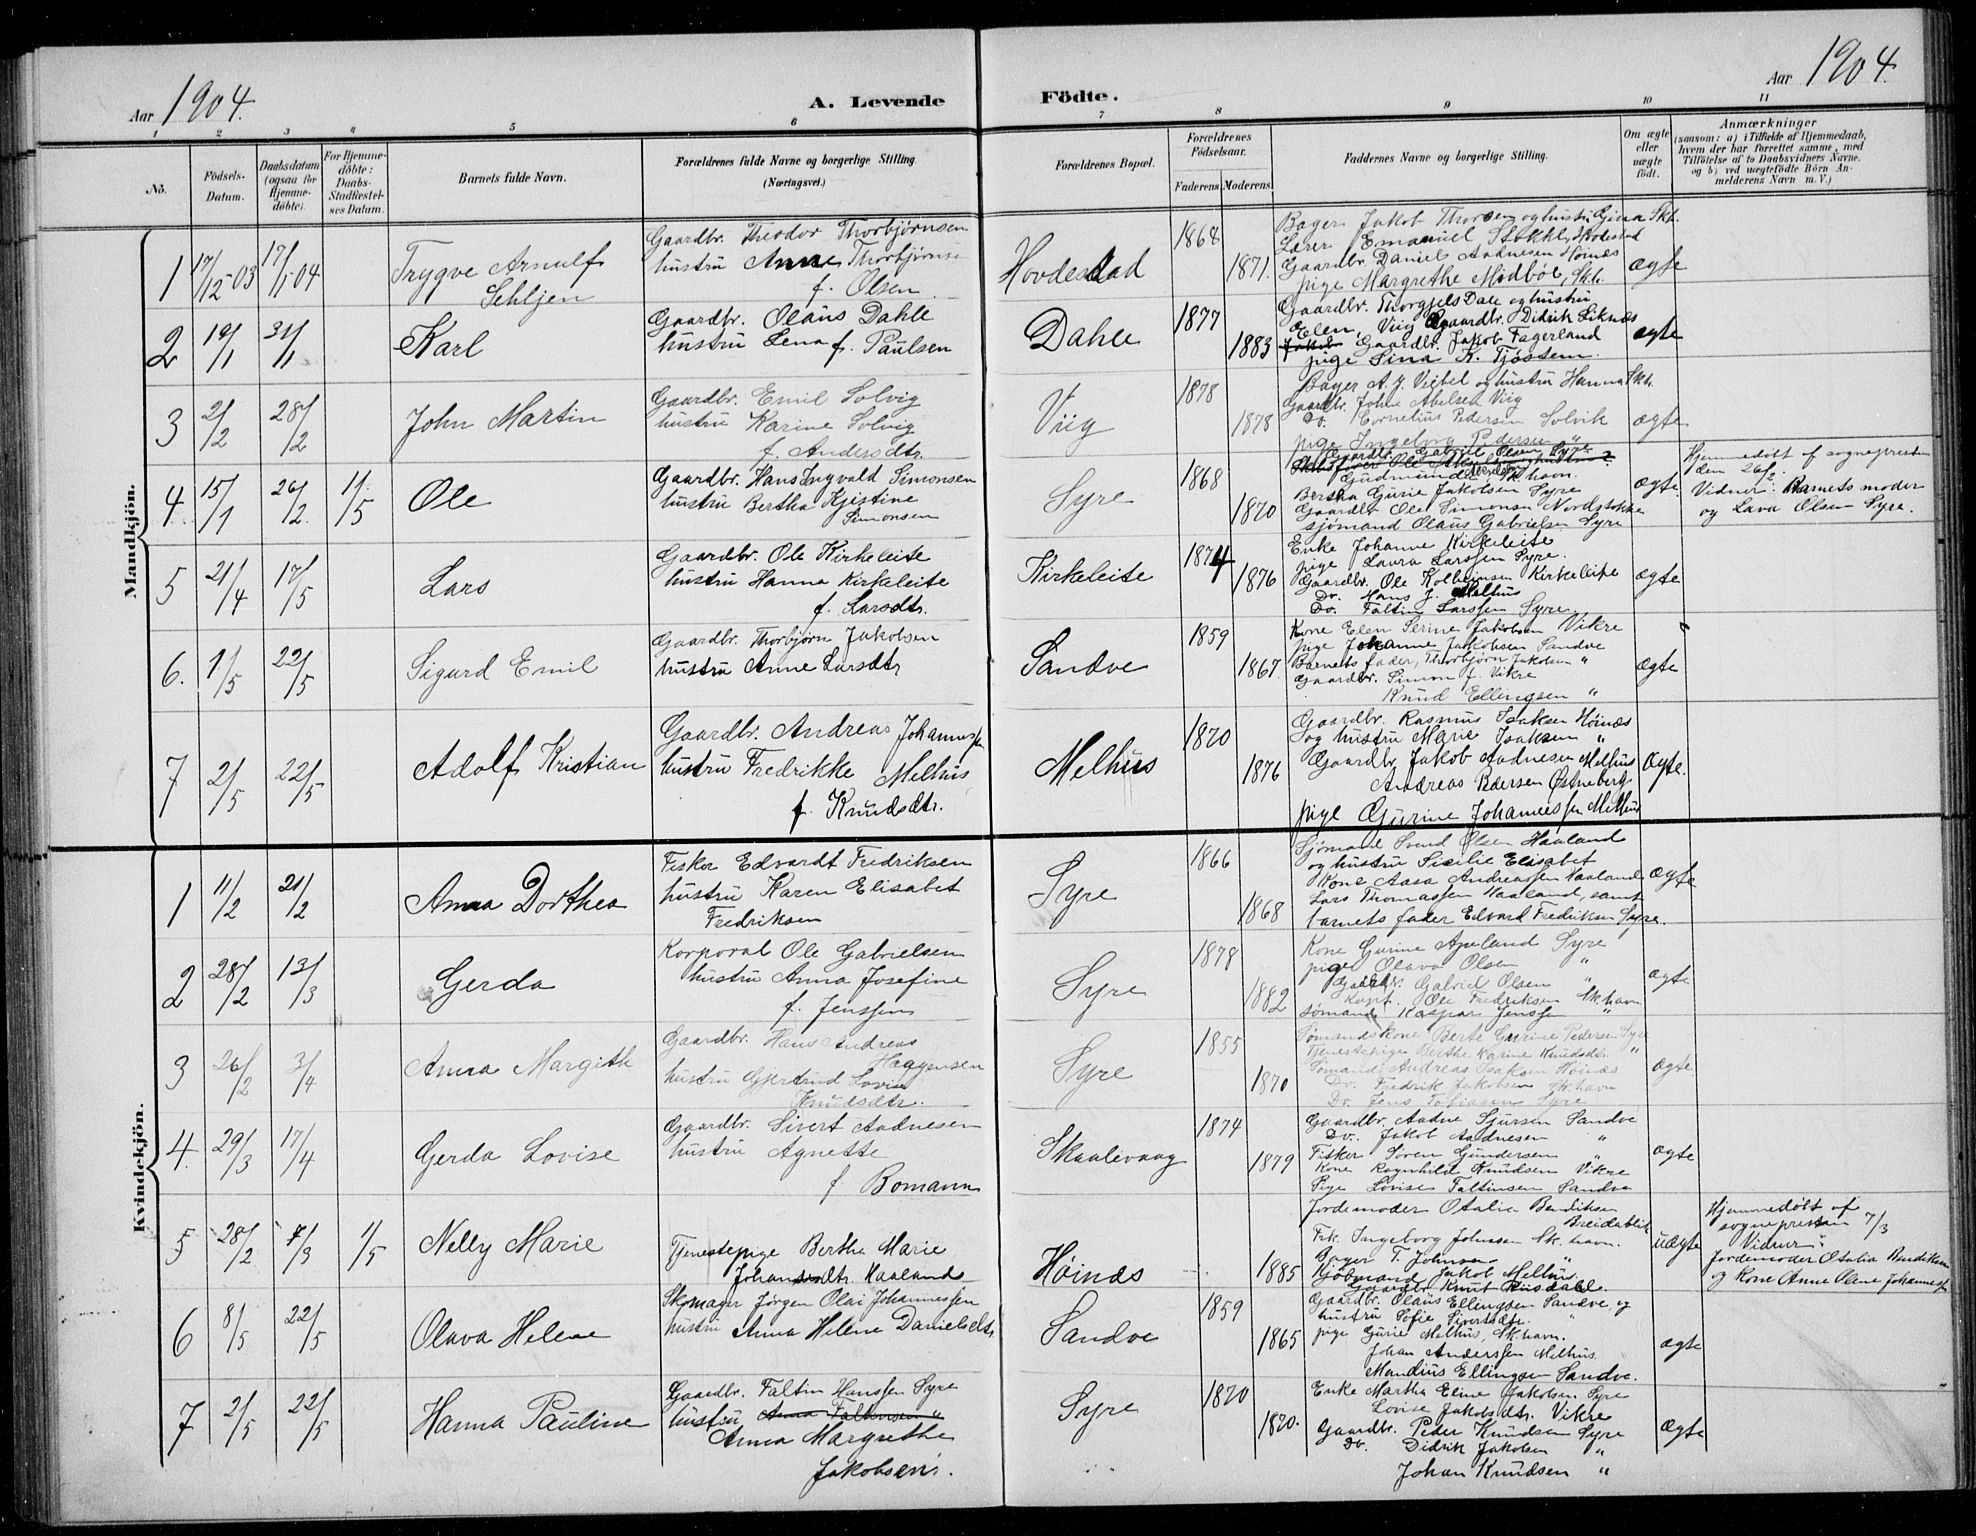 Aar 1904.
A. Levende Födte.
Aar 1904.
1 2 3 4 5 6 7 8 9 10 11
No.
Födsels-Datum.
Daabsdatum (ogsaa for Hjemme-döbte).
For Hjemme-döbte: Daabs-Stadfæstel-ses Datum.
Barnets fulde Navn.
Forældrenes fulde Navne og borgerlige Stilling. (Næringsvei.)
Forældrenes Bopæl.
Forældrenes Födselsaar.
Faderens. Moderens.
Faddernes Navne og borgerlige Stilling.
Om ægte eller uægte födt.
Anmærkninger
(saasom: a) i Tilfælde af Hjemmedaab, hvem der har forrettet samme, med Tilföielse af to Daabsvidners Navne. og b) ved uægtefödte Börn Anmelderens Navn m. V.)
Mandkjön.
1 17/12-03 17/1 04 Trygve Arnulf Sehljen
Gaardbr. Theodor Thorbjørnsen
hustru Anne Thorbjørnsen
f. Olsen
Hovdestad 1864 1871.
Bager Jakob Thorsen og hustru Gina Skh.
Lærer Emanuel Stokke, Hodestad
Gaardbr. Daniels Aadnesen Høines
pige Margrethe Midbøe, Skh.
ægte
2 19/1 31/1 Karl
Gaardbr. Olaus Dahle
hustru Lena f. Paulsen
Dahle 1877 1883
Gaardbr. Thorgjels Dale og hustru
Elen, Viig Gaardbr. Didrik Liknes
Jakob Gaardbr. Jakob Fagerland
pige Sina K. Tjøstem.
ægte
3 2/2 28/2 John Martin
Gaardbr. Emil Solvig
hustru Karine Solvig
f. Andersdtr.
Viig 1878 1878
Bager A. J. Viebel og hustru Hanna Skh.
Gaardbr. John Abelsen Viig
Do. Cornelius Pedersen Solvik
pige Ingeborg Pedersen "
ægte
4 15/1 26/2 1/5 Ole
Gaardbr. Hans Ingvald Simonsen
hustru Bertha Kjistine
Simonsen
Syre 1868 1870
Gaardbr. Gabriel Olsen Syre
Gudmundsen Sk.havn.
Bertha Gurie Jakobsen Syre
Gaardbr. Ole Simonsen Nordstokke
sjømand Olaus Gabrielsen Syre
ægte
Hjemmedøbt af sognepresten
den 26/2
Vidner: Barnets moder
og Lava Olsen Syre.
5 21/4 17/5 Lars
Gaardbr. Ole Kirkeleite
hustru Hanna Kirkeleite
f. Larsdtr.
Kirkeleite 1874 1876
Enke Johanne Kirkeleite
pige Laura Larssen Syre.
Gaardbr. Ole Kolbeinsen Kirkeleite
Do. Hans J. Melhus
Do. Faltin Larssen Syre.
ægte
6. 1/5 22/5 Sigurd Emil
Gaardbr. Thorbjørn Jakobsen
hustru Anne Larsdtr
Sandve 1859 1867.
Kone Elen Serine Jakobsen Vikre
pige Johanne Jakobsen Sandve
Barnets fader, Thorbjørn Jakobsen "
Gaardbr. Simon J. Vikre
Knud Ellingsen "
ægte
7 2/5 22/5 Adolf Kristian
Gaardbr. Andreas Johannessen
hustru Fredrikke Melhus
f. Knudsdtr.
Melhus 1870 1876
Gaardbr. Rasmus Isaksen Høines
og hustru Marie Isaksen "
Gaardbr. Jakob Aadnesen Melhus
Andreas Pedersen Østneberg
pige Gurine Johannessen Melhus
ægte.
Kvindekjön.
1 11/2 21/2 Anna Dorthea
Fisker Edvardt Fredriksen
hustru Karen Elisabet
Fredriksen
Syre 1866 1868
Sjømand Svend Olsen Haaland
og hustru Sicilie Elisabet
Kone Aasa Andreassen Haaland
Lars Thomassen Haaland, samt
barnets fader Edvard Fredriksen Syre.
ægte
2 28/2 13/3 Gerda
Korporal Ole Gabrielsen
hustru Anna Josefine
f. Jenssen
Syre 1878 1882
Kone Gurine Apeland Syre
pige Olava Olsen "
Gaardbr. Gabriel Olsen "
Kapt. Ole Fredriksen Sk.havn
sømand Kaspar Jenssen "
ægte
3 26/2 3/4 Anna Margith
Gaardbr. Hans Andreas
Haagensen
hustru Gjertrud Lovise
Knudsdtr.
Syre 1855 1870
Sømandskone Berte Gurine Pedersen Syre
Tjenestepige Berthe Karine Knudsdtr. "
Sømand Andreas Isaksen Høines
Do. Fredrik Jakobsen Sk.havn
Do. Jens Tobiassen Syre
ægte
4. 29/3 17/4 Gerda Lovise
Gaardbr. Sivert Aadnesen
hustru Agnette
f Bomann
Skaalevaag 1874 1879
Gaardbr. Aadne Sjursen Sandve
Do. Jakob Aadnesen "
Fisker Søren Gundersen "
Kone Ragnhild Knudsen Vikre
Pige Lovise Faltinsen Sandve
ægte
5 28/2 7/3 1/5 Nelly Marie
Tjenestepige Bertha Marie
Johansdtr. Haaland
Høines 1885
Jordemoder Otalia Bendiksen
Breidablik
Frk. Ingeborg Johnsen Sk.havn.
Bager T. Johnsen "
Kjøbmand Jakob Melhus
Gaardbr. Knut Riisdahl.
uægte
Hjemmedøbt af
sognepresten 7/3
Vidner:
Jordemoder Otalia Bendiksen
og Kone Anne Oline Johannessen
6 8/5 22/5 Olava Helene
Skomager Jørgen Olai Johannessen
hustru Anna Helene Danielsdtr
Sandve 1859 1865
Gaardbr. Olaus Ellingsen Sandve, og
hustru Sofie Sivertsdtr. "
pige Gurie Melhus, Sk.havn.
Johan Anderssen Melhus.
Mandius Ellingsen Sandve.
ægte
7 2/5 22/5 Hanna Pauline
Gaardbr. Faltin Hanssen Syre
hustru Anna Faltinsen "
Anna Margrethe
Jakobsen.
Syre 1870 1870.
Enke Martha Eline Jakobsen Syre
Lovise Jakobsdtr. Vikre
Gaardbr. Peder Knudsen Syre
Do. Didrik Jakobsen "
Johan Knudsen "
ægte